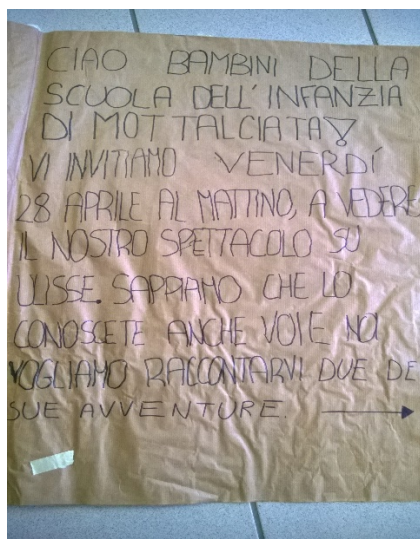 CIAO BAMBINI DELLA
SCUOLA DELL'INFANZIA
DI MOTTALCIATA!
VI INVITIAMO VENERDÍ
28 APRILE AL MATTINO, A VEDERE
IL NOSTRO SPETTACOLO SU
ULISSE. SAPPIAMO CHE LO
CONOSCETE ANCHE VOI E NOI
VOGLIAMO RACCONTARVI DUE DE
SUE AVVENTURE.